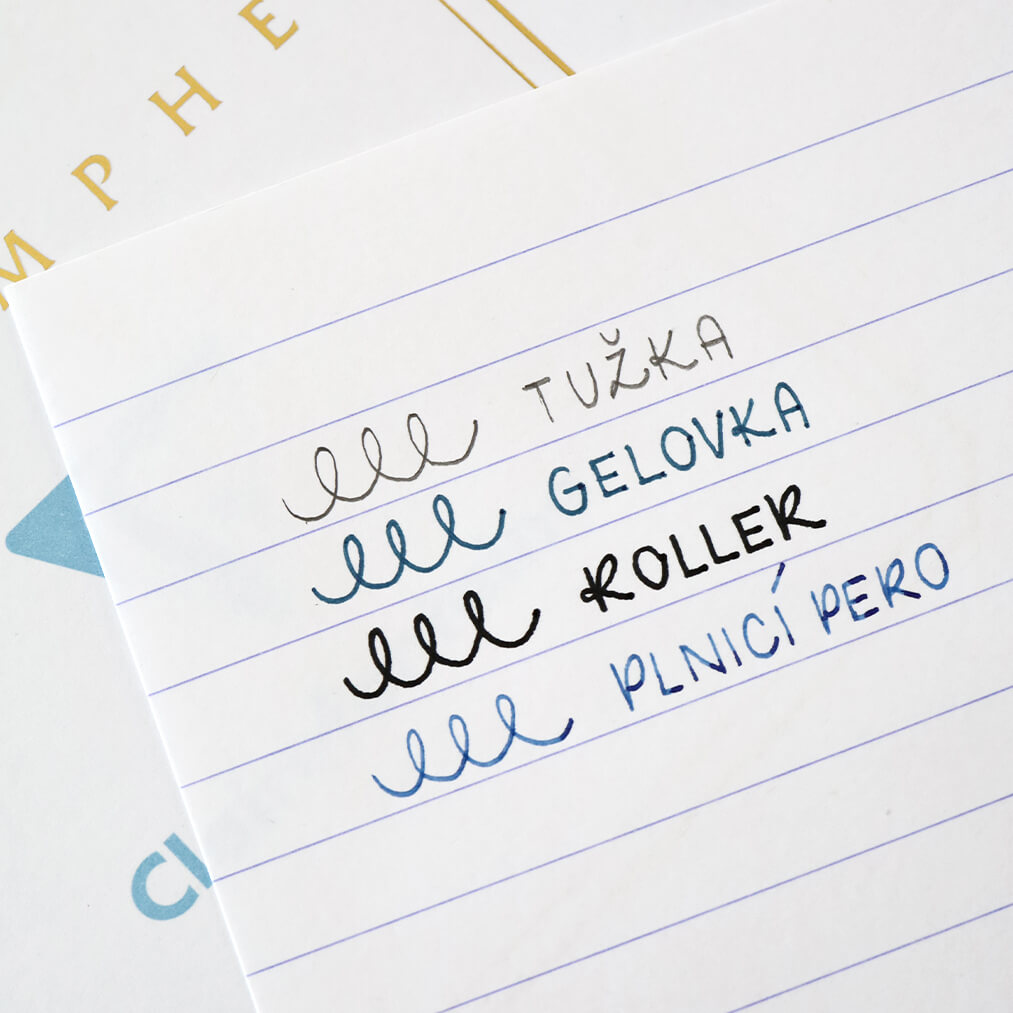 MPHE
TUŽKA
GELOVKA
ROLLER
PLNICÍ PERO